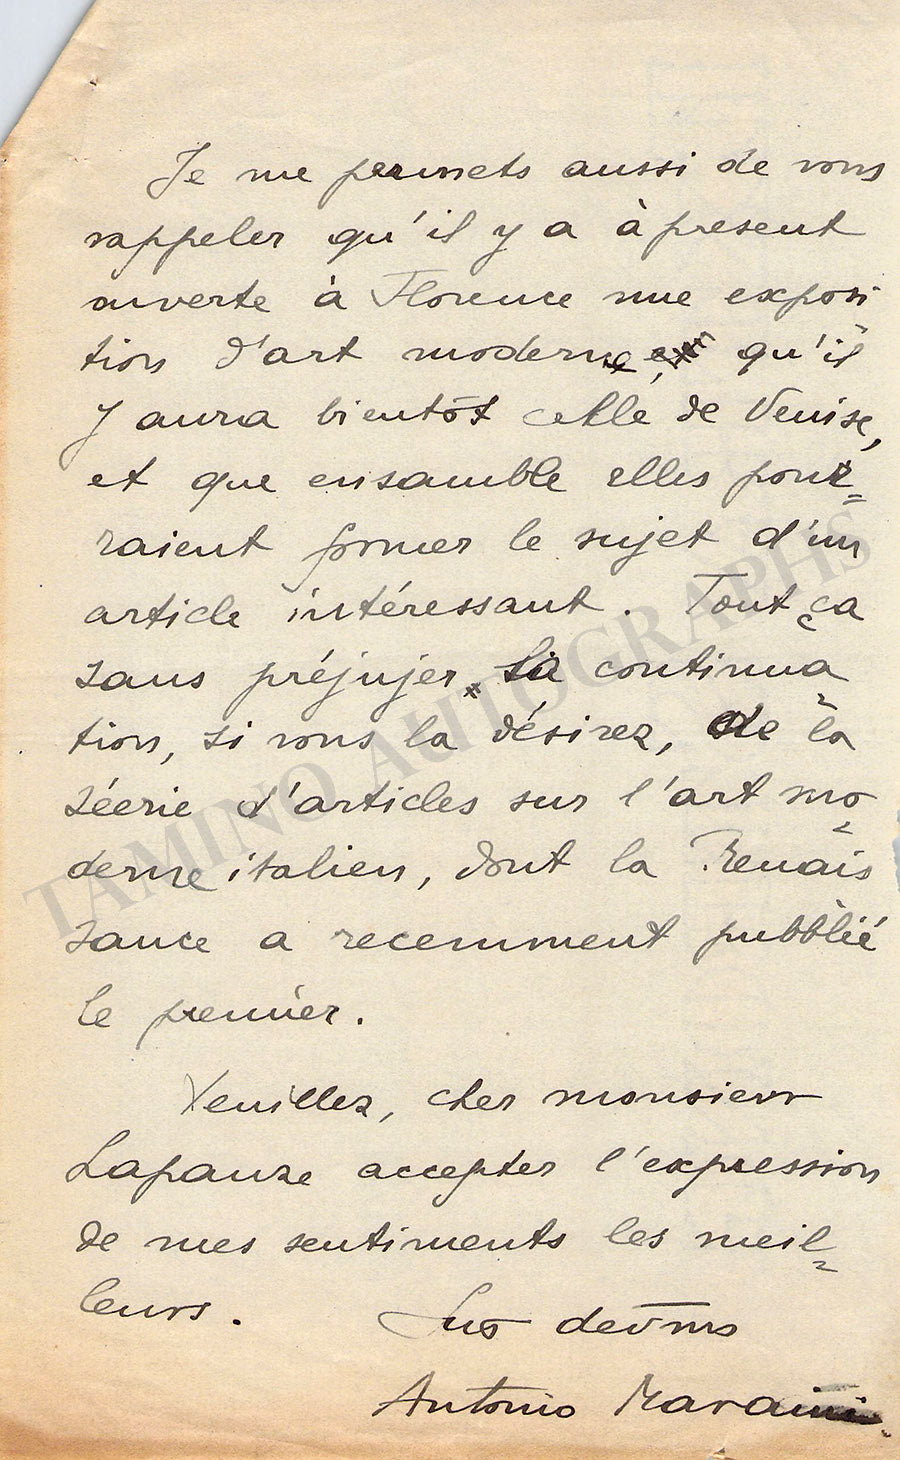 Je me permets aussi de vous
rappeler qu'il y a à présent
ouverte à Florence une exposi
tion d'art moderne, qu'il
y aura bientôt celle de Venise,
et que ensamble elles pour=
raient former le sujet d'un
article intéressant. Tout ça
sans préjujer la continua-
tion, si vous la désirez, de la
séerie d'articles sur l'art mo-
derne italien, dont la Renais
sance a recemment pubblié
le premier.
Veuillez, cher monsieur
Lapauze accepter l'expression
de mes sentiments les meil-
leurs. Suo devmo
Antonio Maraini
TAMINO AUTOGRAPHS